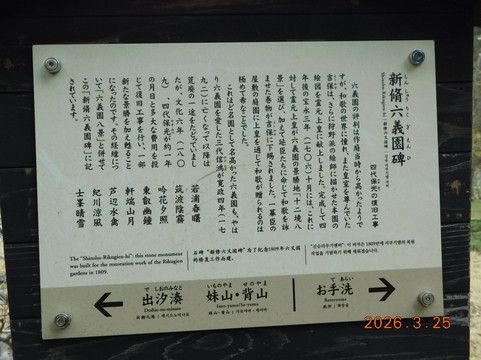 新脩六義園碑
しんしゅうりくぎえんひ
四代保光の復旧工事
六義園の評判は作庭当時から高かったようで
すが、和歌の世界に憧れ、また皇室を尊んでいた
吉保は、さらに狩野派の絵師に描かせた本園の
絵図を霊元上皇に献上しました。完成して四
年後の宝永三年(一七〇六)十月には、これに
対して霊元上皇が六義園の景勝地「十二境八
景」を選び、加えて廷臣たちに命じて和歌を詠
ませた巻物が吉保に下賜されました。一幕臣の
屋敷の庭園に上皇を通じて和歌が贈られるのは
極めて希なことでした。
これほど名園として名高かった六義園も、やは
り六義園を愛した三代信鴻が寛政四年(一七
九二)に亡くなって以降は
荒廃の一途をたどっていまし
たが、文化六年(一八〇
九)、四代保光が約一年
の月日と多大な費用を投
じて復旧工事を行い、一部
新たな景勝を加え甦ること
になったのです。その経緯につ
いて「六義園八景」と併せて
この「新脩六義園碑」に記
されています。
若浦春曙
筑波陰霧
吟花夕照
東叡幽鐘
軒端山月
芦辺水禽
紀川涼風
士峯晴雪
The "Shinshu-Rikugien-hi"; this stone monument
was built for the restoration work of the Rikugien
gardens in 1809.
石碑“新修六义园碑”为了纪念1809年六义园
待修复工作而建。
でしおのみなと
出汐湊
Deshio-no-minato
いものやま せのやま
妹山・背山
Imo-yama/Se-yama
てあらい
お手洗
Restrooms
2026. 3. 25